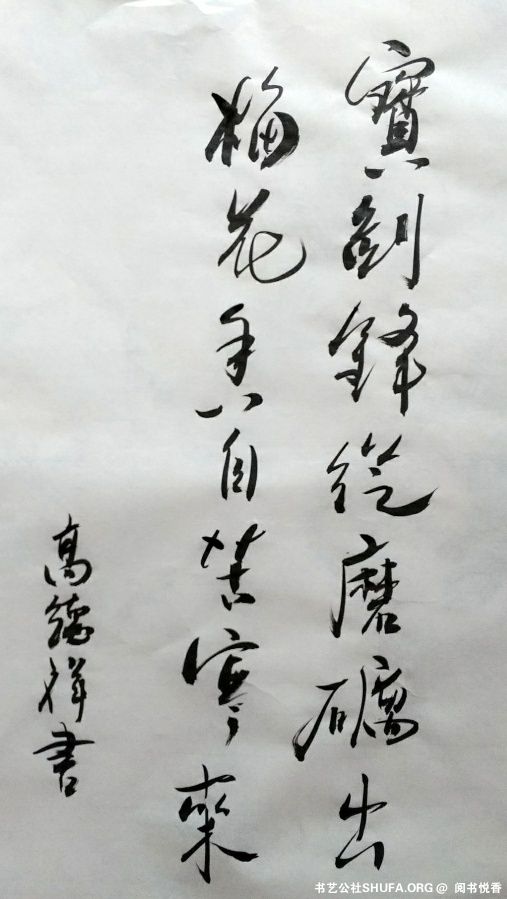 寶劍鋒從磨礪出
梅花香自苦寒來
高德祥書
书艺公社SHUFA.ORG @ 阅书悦香